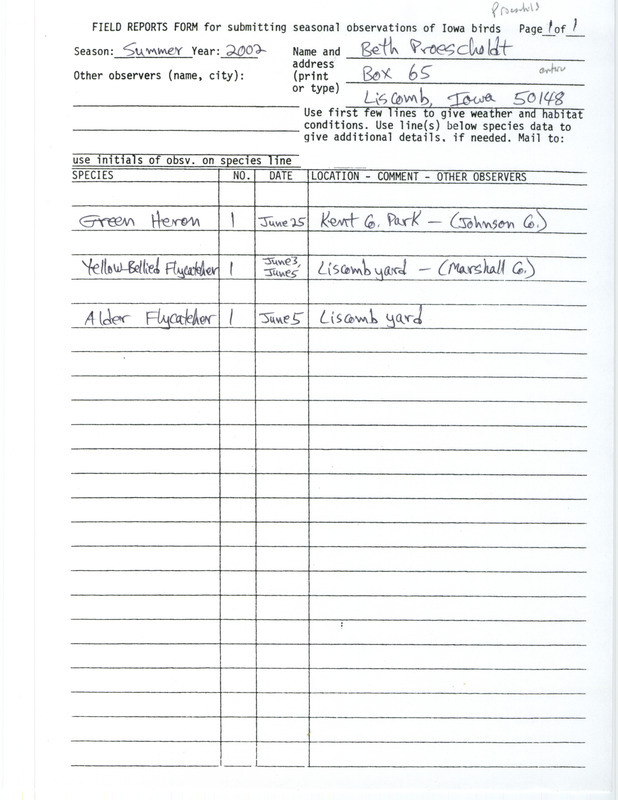 FIELD REPORTS FORM for submitting seasonal observations of Iowa birds Page 1 of 1
Season: Summer Year: 2002
Name and address (print or type)
Beth Proescholdt
Box 65
Liscomb, Iowa 50148
Other observers (name, city):
Use first few lines to give weather and habitat
conditions. Use line(s) below species data to
give additional details, if needed. Mail to:
use initials of obsv. on species line
SPECIES NO. DATE LOCATION - COMMENT - OTHER OBSERVERS
Green Heron 1 June 25 Kent Co. Park - (Johnson Co.)
Yellow-Bellied Flycatcher 1 June 3, June 5 Liscomb yard - (Marshall Co.)
Alder Flycatcher 1 June 5 Liscomb yard